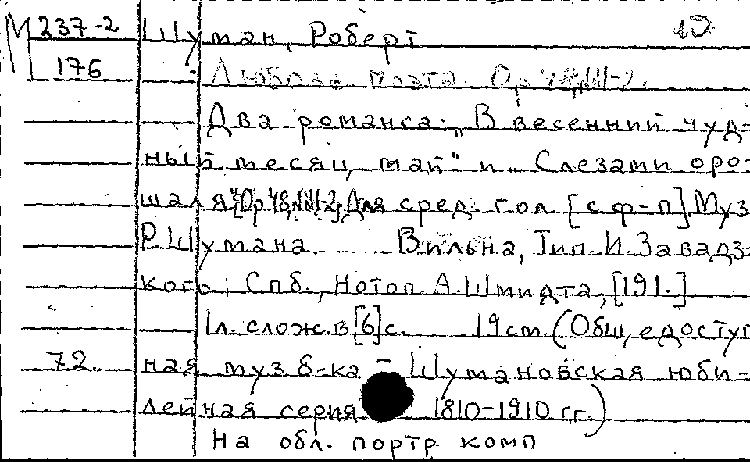 М 237-2 Шуман, Роберт 10
176 Любовь поэта. Op. 48, №1-2.
Два романса: „В весенний чуд-
ный месяц май" и „Слезами оро-
шаля", [Op. 48, №1-2]. Для сред. гол. [с ф-п]. Муз.
Р. Шумана. Вильна, Тип. И. Завадз-
кого; Спб., Нотоп. А. Шмидта, [191.]
1 л. слож. в [6] с. 19 см (Общедоступ
72. ная муз. б-ка – Шумановская юби-
лейная серия 1810-1910 гг.)
На обл. портр комп